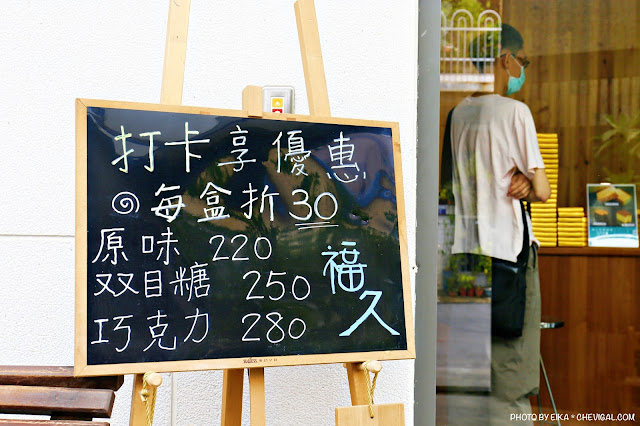 打卡享優惠
◎每盒折30
原味 220
双目糖 250
巧克力 280
福久
PHOTO BY EIKA * CHEVIGAL.COM